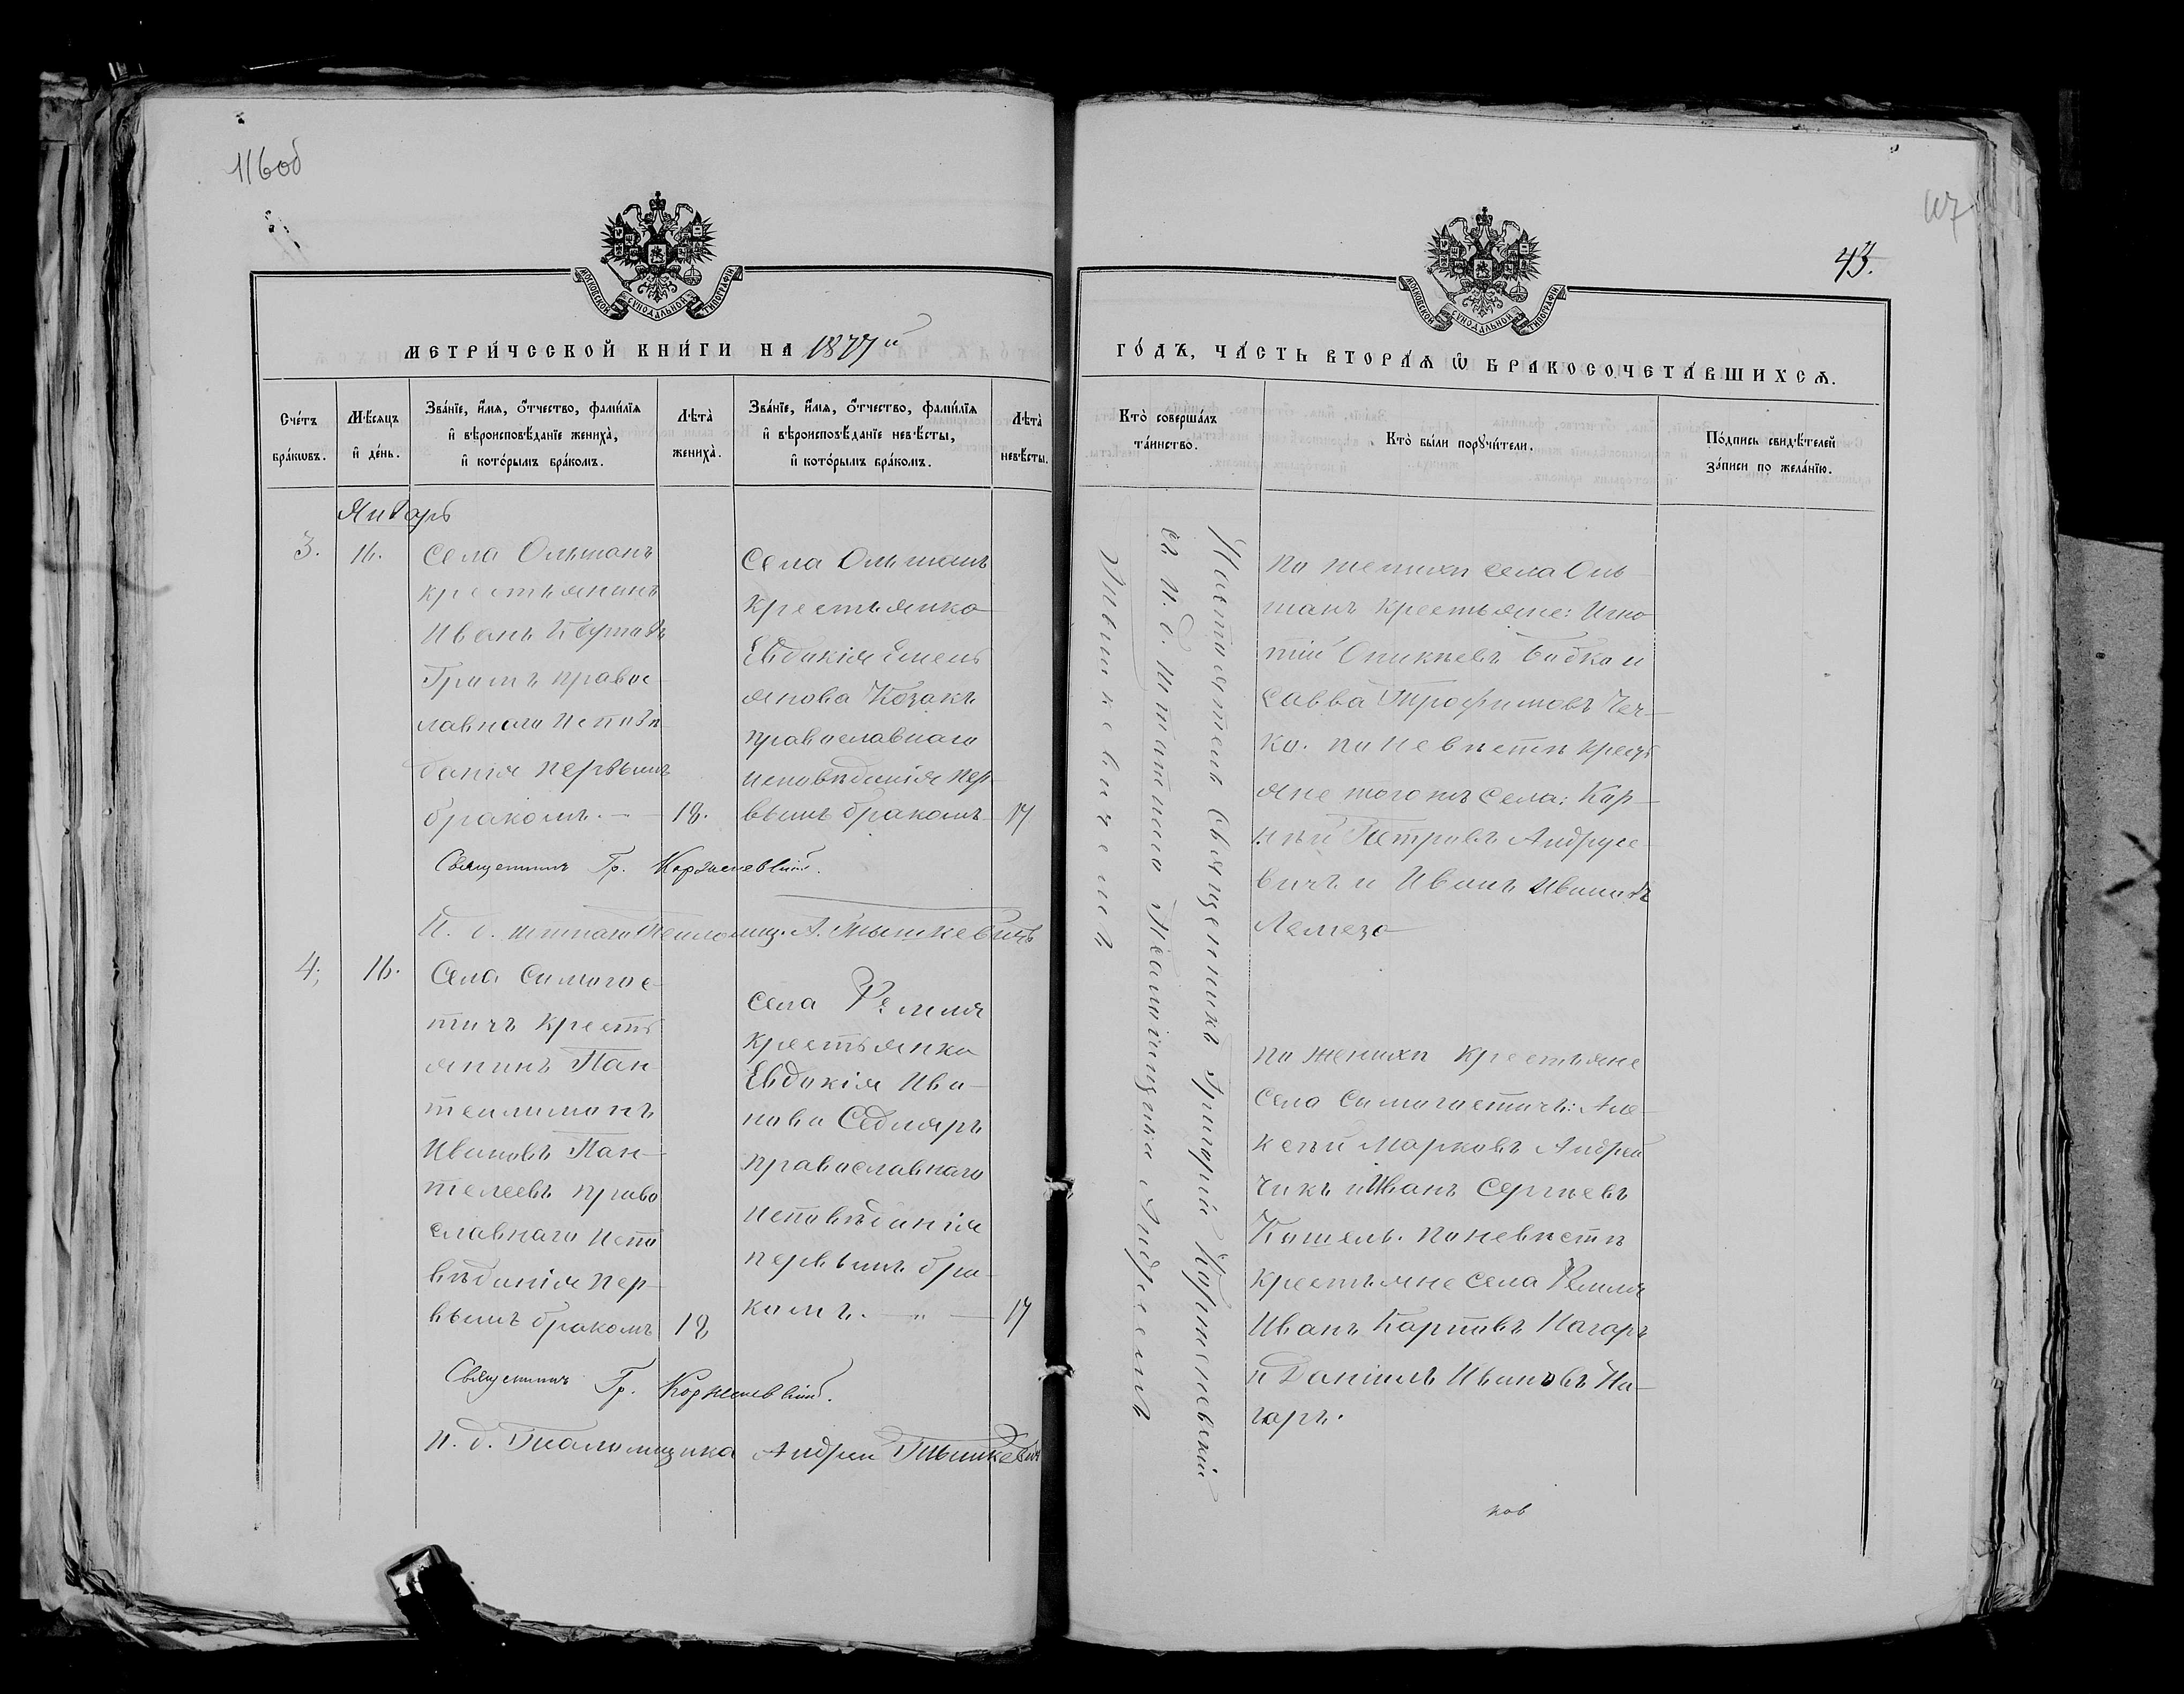 116об
117
43.
МОСКОВСКОЙ СѴНОДАЛЬНОЙ ТИПОГРАФІИ
МЕТРИ́ЧЕСКОЙ КНИ́ГИ НА 1877й
Сче́тъ бра́кѡвъ.
Мѣ́сяцъ и҆ де́нь.
Зва́нїе, и҆́мѧ, о҆́тчество, фами́лїѧ
и҆ вѣроисповѣ́данїе жениха̀,
и҆ кото́рымъ бра́комъ.
Лѣта̀ жениха̀.
Зва́нїе, и҆́мѧ, о҆́тчество, фами́лїѧ
и҆ вѣроисповѣ́данїе невѣ́сты,
и҆ кото́рымъ бра́комъ.
Лѣта̀ невѣ́сты.
Январь
3.
16.
Села Ольманъ
крестьянинъ
Иванъ Карповъ
православнаго исповѣ
данія первымъ
бракомъ. —
18.
Села Ольманъ
крестьянка
Евдокія Емель
янова Козакъ
православнаго
исповѣданія пер-
вымъ бракомъ
17
Священникъ Гр. Корженевскій.
И. д. штатн. Псаломщ. А. Тышкевичъ
4.
16.
Села Симогос-
тичъ кресть
янинъ Пан-
телимонъ
Ивановъ Пан-
телеевъ право
славнаго испо
вѣданія пер-
вымъ бракомъ
18
Села Ремля
крестьянка
Евдокія Ива-
нова Седляръ
православнаго
исповѣданія
первымъ бра-
комъ. — " —
17
Священникъ Гр. Корженевскій.
И. д. Псаломщика Андрей Тышкевичъ
МОСКОВСКОЙ СѴНОДАЛЬНОЙ ТИПОГРАФІИ
ГО́ДЪ, ЧА́СТЬ ВТОРА́Ѧ Ѡ҆ БРАКОСОЧЕТА́ВШИХСѦ.
Кто̀ соверша́лъ
та́инство.
Кто̀ бы́ли порꙋчи́тели.
По́дпись свидѣ́телей
за́писи по жела́нїю.
Настоятель Священникъ Григорій Корженевскій
съ И. д. штатнаго Псаломщика Андреемъ
Тышкевичемъ
по женихѣ села Оль
манъ крестьяне: Игна
тій Аникіевъ Бабка и
Савва Трофимовъ Чеч-
ко. по невѣстѣ кресть
яне того жъ села: Кор-
нѣй Петровъ Андрусе
вичъ и Иванъ Ивановъ
Лемеза
по женихѣ крестьяне
села Симогостичъ: Але-
ксѣй Марковъ Андрей
чикъ и Иванъ Сергѣевъ
Кошель. по невѣстѣ
крестьяне села Ремля
Иванъ Карповъ Нагаръ
и Даніилъ Ивановъ На-
гаръ.